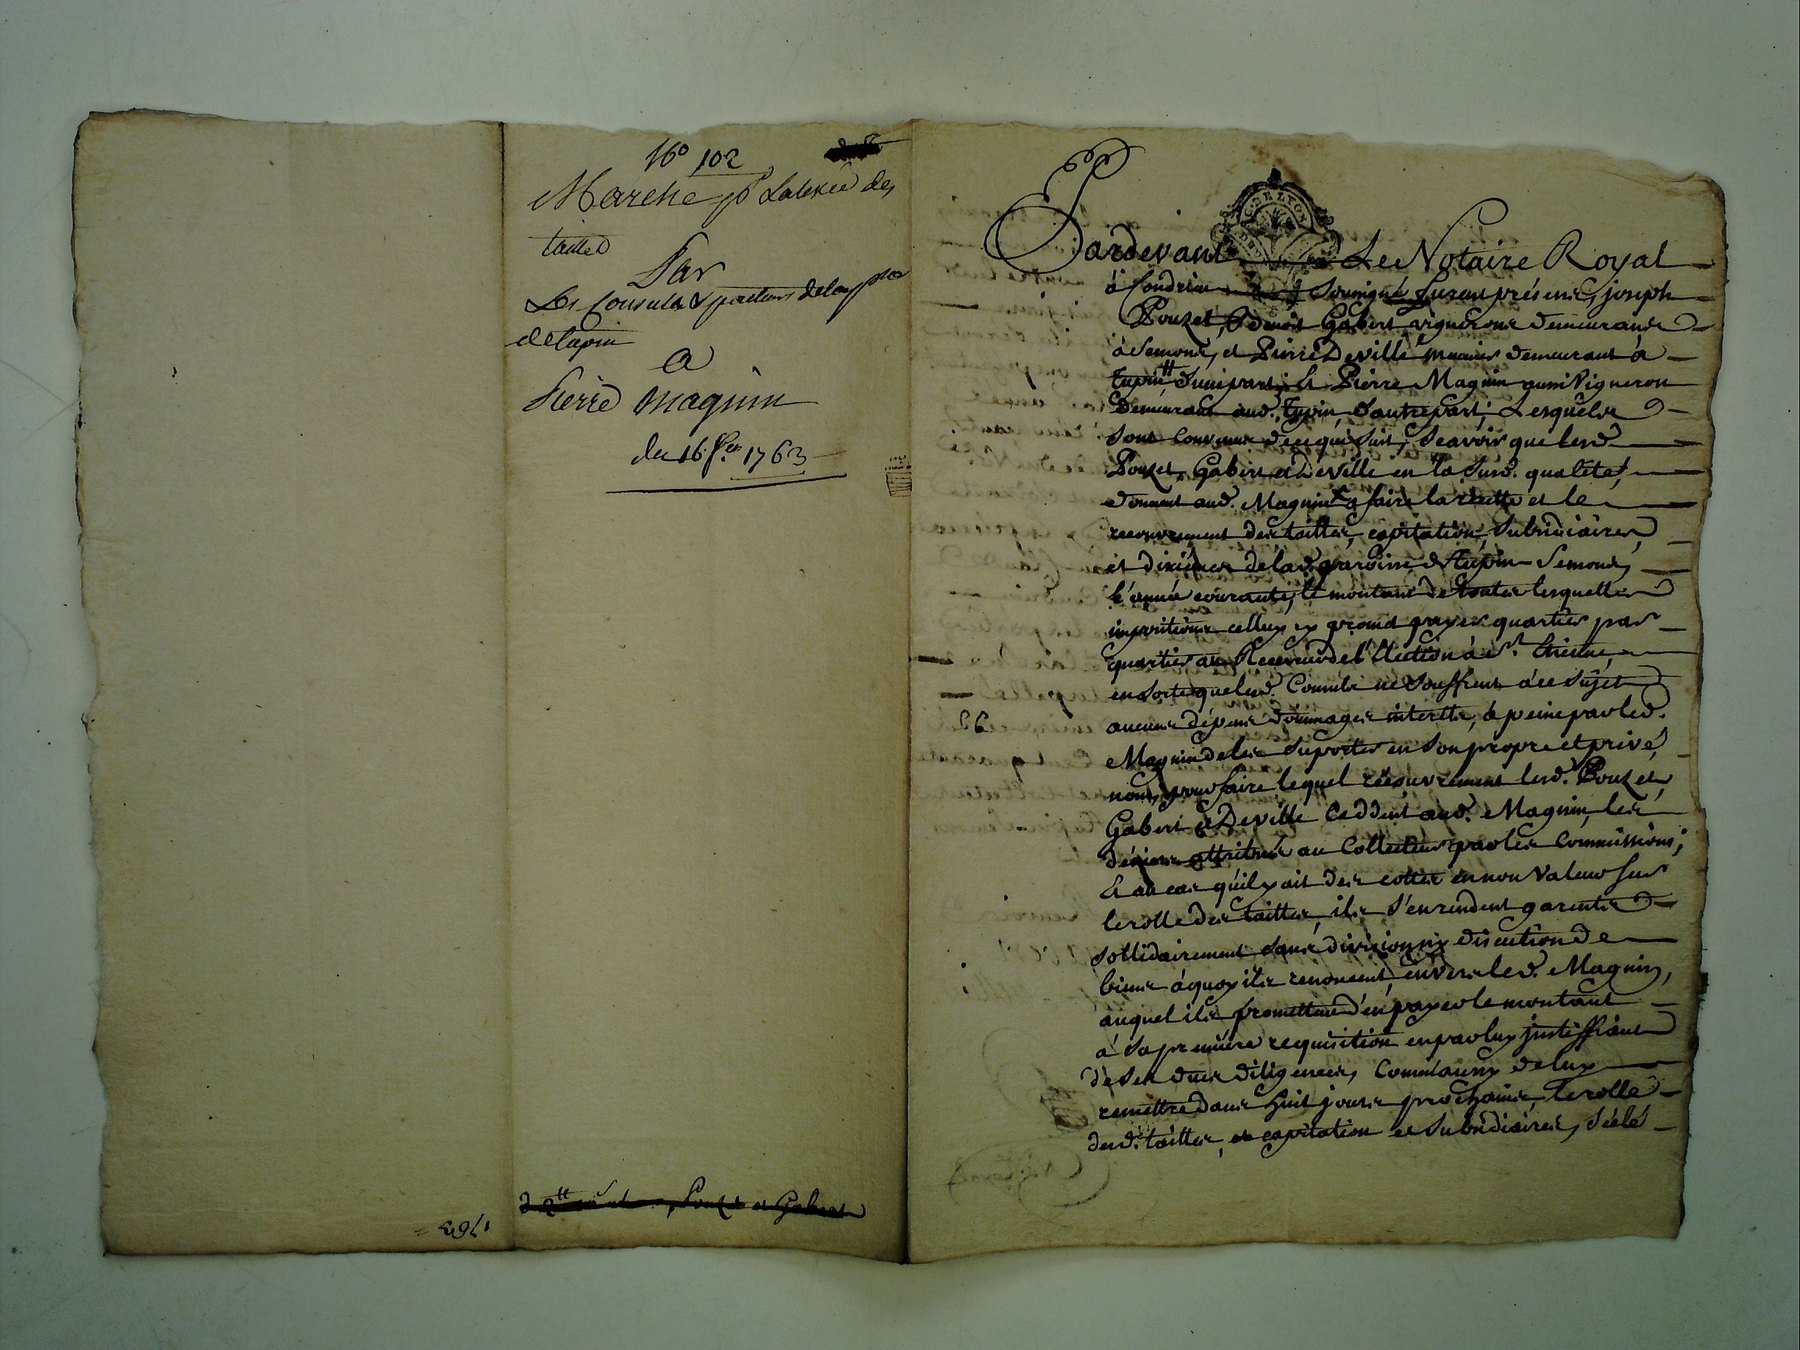 No 102
Marché pr La levée des
tailles
Par
Les Consuls & de la psse
de Tupin
A
Pierre Magnin
du 16 1763
1763
Pardevant Le Notaire Royal
à Condrieu Soussigné furent présents, joseph
Pouzet, Benoit Gabert vignerons demeurants
à Semons, et Pierre Deville demeurant à
Tupin d'une part; Et Pierre Magnin aussi Vigneron
Demeurant aud. Tupin d'autre part; Lesquels
sont convenus de ce qui suit, Scavoir que lesd.
Pouzet, Gabert et Deville en la susd. qualité,
donnent aud. Magnin à faire la recette et le
recouvrement des tailles, capitation, subsidiaires,
et dixièmes de lad. paroisse de Tupin Semons,
l'année courante, le montant de toutes lesquelles
impositions celluy cy promet payer quartier par
quartier au Receveur de l'Election à St. Etienne,
en sorte que lesd. Consuls ne souffrent à ce sujet
aucuns dépens dommages interets, à peine par led.
Magnin de les suporter en son propre et privé
nom, pour faire lequel recouvrement lesd. Pouzet,
Gabert et Deville ceddent aud. Magnin, les
deniers attribués au Collecteur par les Commissions;
Et au cas qu'il y ait des cottes en non valeur sur
le rolle des tailles, ils s'en rendent garents
sollidairement sans division ny discution de
biens à quoy ils renoncent, envers led. Magnin,
auquel ils promettent d'en payer le montant
à sa première requisition en par luy justiffiant
de ses dues diligences, Comm'aussy de luy
remettre dans huit jours prochains, le rolle
desd. tailles, et capitation et subsidiaires, s'il é